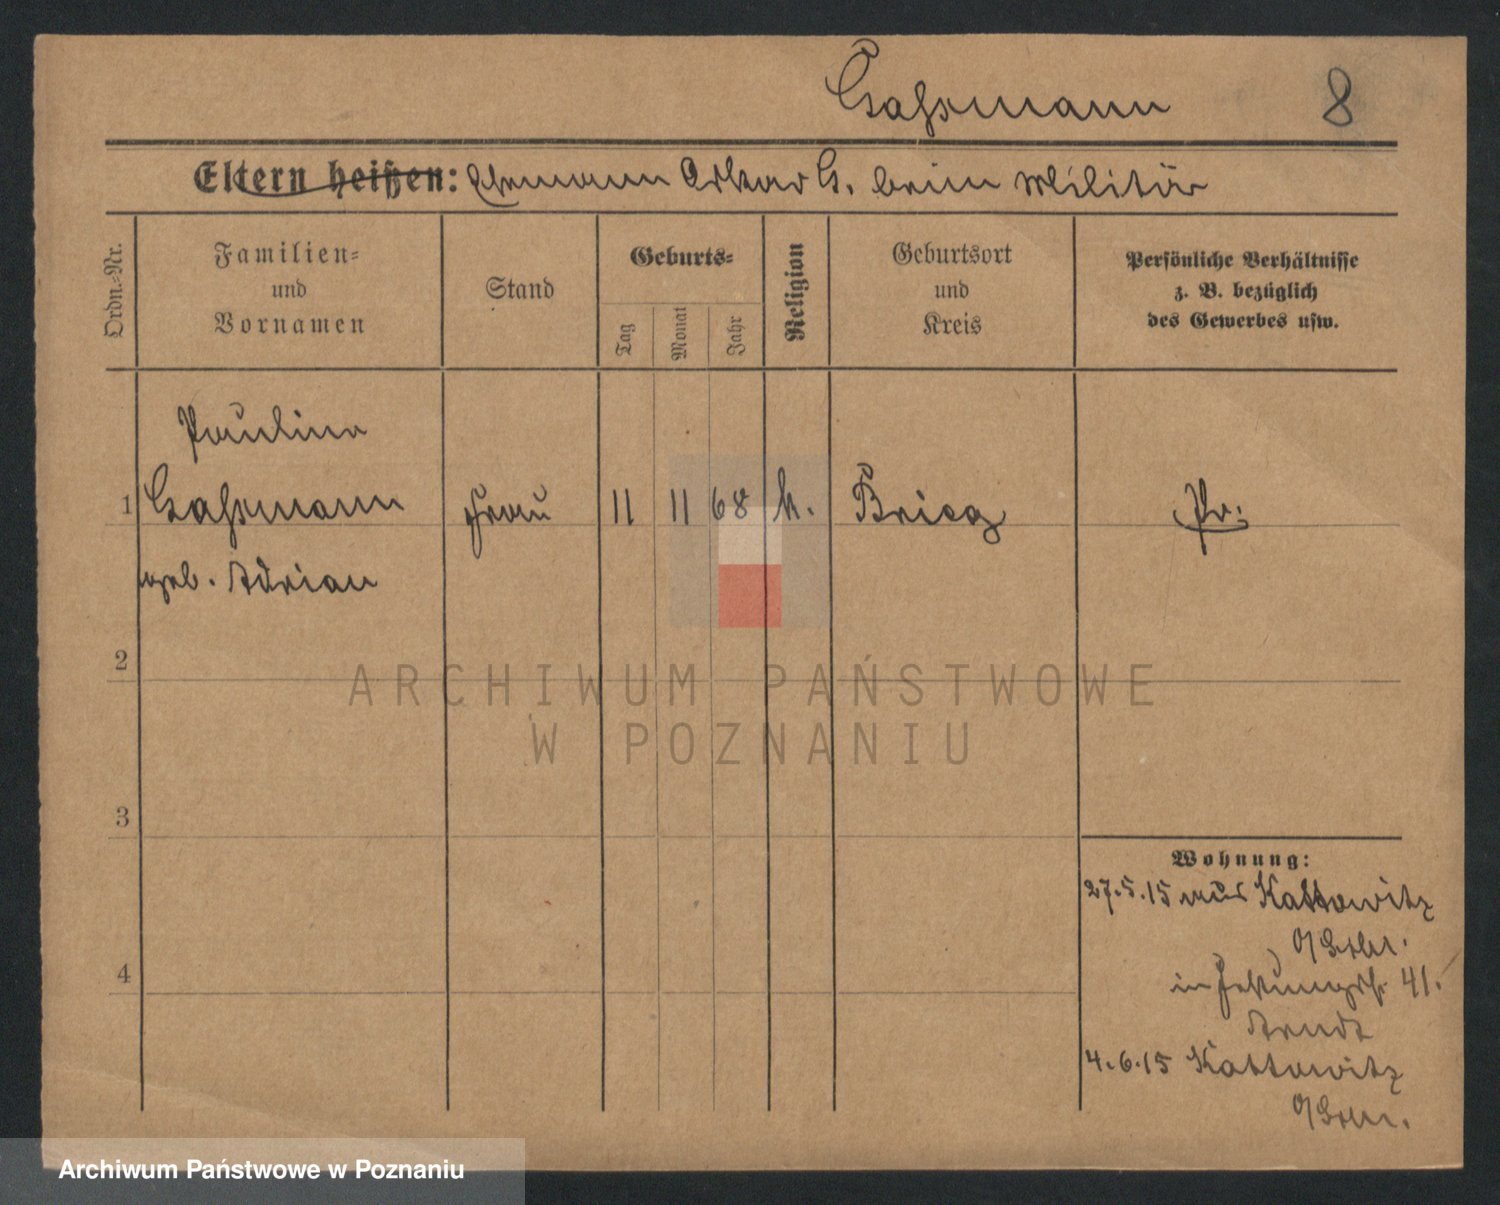 Gaßmann 8
Eltern heißen: Ehemann Oskar G. beim Militär
Ordn.-Nr.
Familien- und Vornamen
Stand
Geburts-
Tag Monat Jahr
Religion
Geburtsort und Kreis
Persönliche Verhältnisse
z. B. bezüglich
des Gewerbes usw.
Pauline
1 Gaßmann Frau 11 11 68 k. Brieg Pr.
geb. Adrian
2
ARCHIWUM PAŃSTWOWE
W POZNANIU
3
Wohnung:
27.5.15 aus Kattowitz
in 41.
Arndt
4
4.6.15 Kattowitz
Archiwum Państwowe w Poznaniu